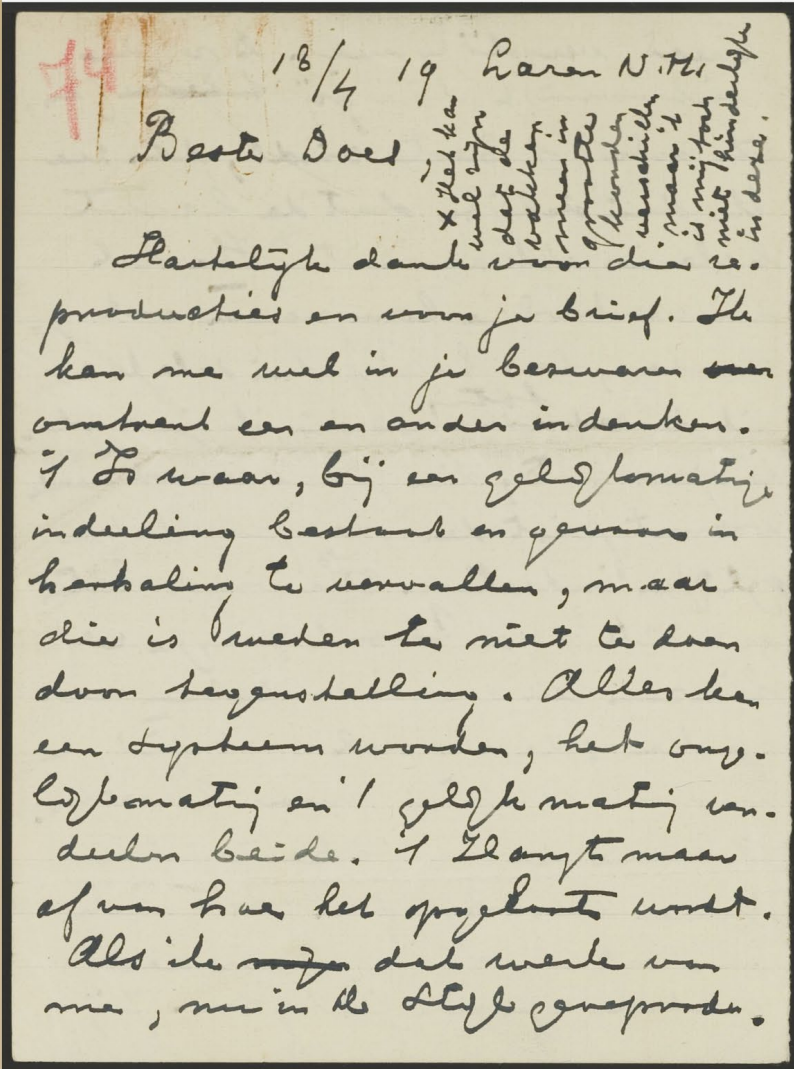 74
18/4 19 Laren N.H.
Beste Does
x Het kan
wel zijn
dat de
vakken
meer in
grootte
konden
verschillen
maar 't
is mij toch
niet hinderlijk
in deze.
Hartelijk dank voor die re-
producties en voor je brief. Ik
kan me wel in je bezwaren
omtrent een en ander indenken.
't Is waar, bij een gelijkmatige
indeeling bestaat en gevaar in
herhaling te vervallen, maar
die is weder te niet te doen
door tegenstelling. Alles kan
een systeem worden, het onge-
lijkmatig en 't gelijkmatig ver-
deelen beide. 't Hangt maar
af van hoe het opgelost wordt.
Als ik dat werk van
me, nu in de Stijl gereprodu-